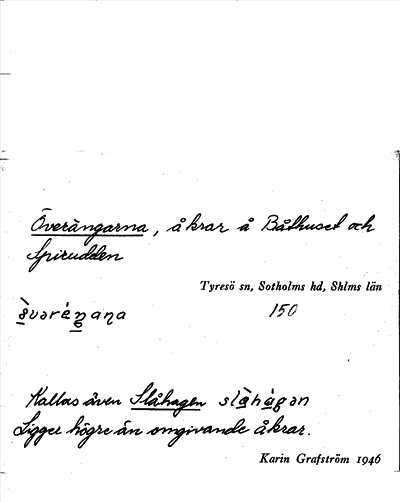 Överängarna, åkrar å Båthuset och
Spirudden
Tyresö sn, Sotholms hd, Shlms län
150
Kallas även Slåhagen slå̀hágən
Ligger högre än omgivande åkrar.
Karin Grafström 1946